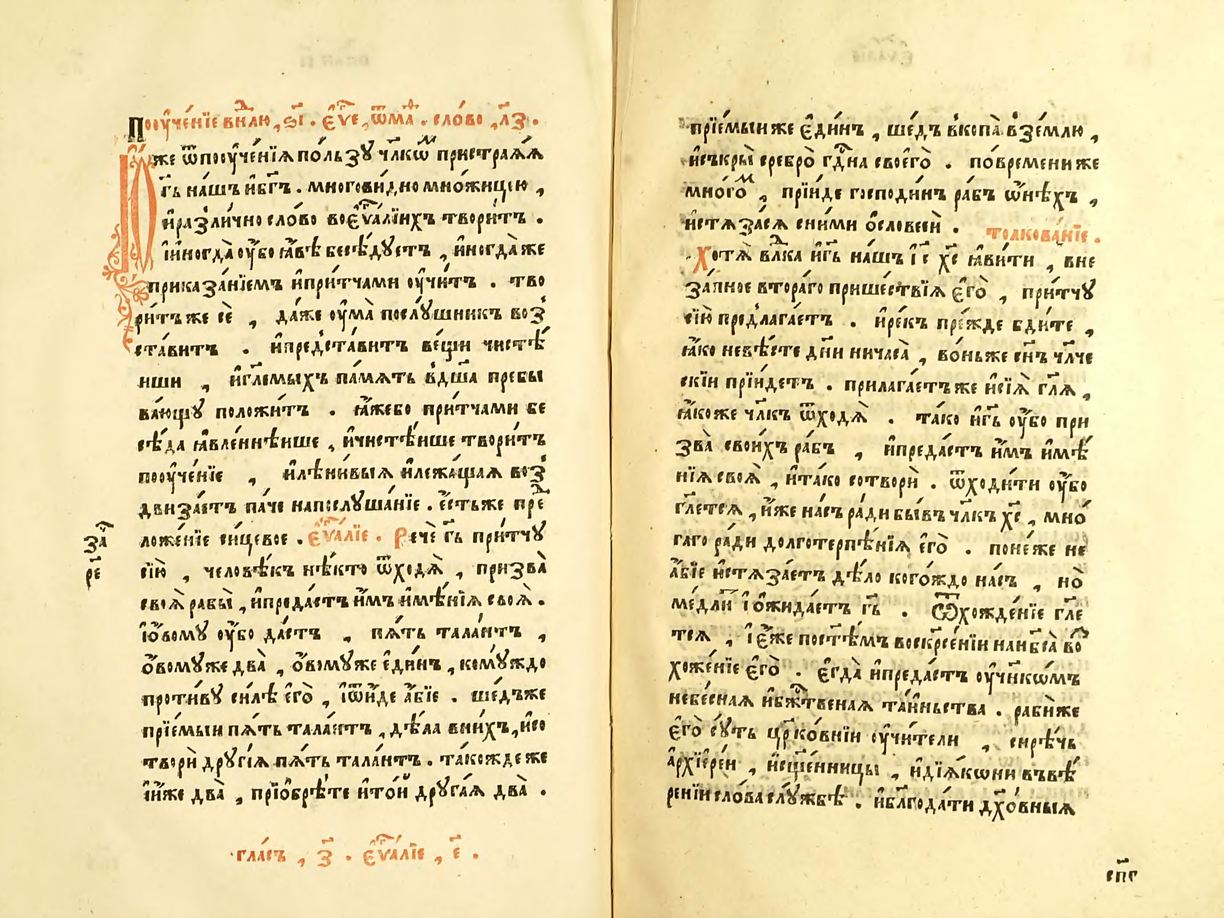 Пооуче́нїе внлⷣю, ѕ҃і. є҆ѵⷢ҇е, ѿ маⷴ҇. сло́во, л҃з.
И҆́же ѿ пооуче́нїѧ по́льзꙋ чл҃кѡⷨ при́стра́ѧѧ
гь҃ на́шъ и҆ бг҃ъ. многови́дно мно́жицїю,
и҆ разли́чно сло́во во є҆ѵⷢ҇а́лїихъ твори́тъ.
и҆ и҆ногда̀ оу҆́бо ꙗ҆́вѣ бесѣ́дуетъ, и҆ногда́ же
прика́за́нїемъ и҆ при́тчами оу҆чи́тъ. тво
ри́тъ же сѐ, да́же оу҆ма̀ послꙋ́шникъ воз̾
ста́витъ. и҆ предста́витъ ве́щи чистѣ́
иши, и҆ гл҃емыхъ па́мѧть в̾ дш҃а пребы
ва́ющꙋ положи́тъ. ꙗ҆́же бо при́тчами бе
сѣ́да ꙗ҆вле́ннѣише, и҆ чистѣ́ише твори́тъ
пооуче́нїе, и҆ лѣни́выѧ и҆ лежа́щаѧ воз̾
двиза́етъ па́че на послꙋ́шанїе. є҆́сть же преⷣ
ложе́нїе си́цевое. є҆ѵⷢ҇а́лїе. Речѐ гь҃ при́тчꙋ
заⷱ҇
р҃е
сїю̀, человѣ́къ нѣ́кто ѿходѧ̀, призва̀
своѧ̀ рабы̀, и҆ преда́стъ и҆̀мъ и҆мѣ́нїѧ своѧ̀.
і҆ о҆́вомꙋ оу҆́бо да́стъ, пѧ́ть тала́нтъ,
о҆́вомꙋ же два̀, о҆́вомꙋ же є҆ди́нъ, комꙋ́ждо
проти́вꙋ си́лѣ є҆го̀, і҆ ѿи́де а҆́бїе. ше́дъ же
прїе́мыи пѧ́ть тала́нтъ, дѣ́ла в ни́хъ, и҆ со
творѝ дрꙋгі́ѧ пѧ́ть тала́нтъ. та́кожде же
и҆ и҆́же два̀, прїобрѣ́те и҆ то́й дрꙋга́ѧ два̀.
гла́съ, з҃. є҆ѵⷢ҇а́лїе, є҃.
прїе́мыи же є҆ди́нъ, ше́дъ вкопа̀ в̾ зе́млю,
и҆ съкры̀ сребро̀ гдⷭ҇на своего̀. по вре́мени же
мно́гоⷨ, прїи́де господи́нъ ра́бъ ѡ҆нѣ́хъ,
и҆стѧза́сѧ с ни́ми о҆ словесѝ. толкова́нїе.
Хотѧ̀ влⷣка и҆ гь҃ на́шъ і҆с҃ хс҃ ꙗ҆ви́ти, вне
за́пное втора́го прише́ствїѧ є҆го̀, при́тчꙋ
сїю̀ предлага́етъ. и҆ ре́къ пре́жде бди́те,
ꙗ҆́ко не вѣ́сте дн҃и ни часа̀, во́ньже сн҃ъ чл҃че
скїи прїи́детъ. прилага́етъ же и҆ сїѧ̀ гл҃ѧ,
ꙗ҆́коже чл҃къ ѿходѧ̀. та́ко и҆ гь҃ оу҆́бо при
зва̀ свои́хъ ра́бъ, и҆ преда́стъ и҆̀мъ и҆мѣ́
нїѧ своѧ̀, и҆ та́ко сотворѝ. ѿходи́ти оу҆́бо
гл҃етсѧ, и҆́же на́съ ра́ди бы́въ чл҃къ хс҃, мно́
гаго ра́ди долготерпѣ́нїѧ є҆го̀. поне́же нѐ
а҆́бїе и҆стѧза́етъ дѣ́ло кого́ждо на́съ, но̀
ме́длѧ і҆ о҆жида́етъ гь҃. Ѿхожде́нїе гл҃е
тсѧ, і҆ є҆́же по сте҃мъ воскр҃се́нїи на нб҃са̀ воⷭ҇
хоже́нїе є҆го̀. є҆гда̀ и҆ преда́стъ оу҆чн҃кѡ́мъ
небе́снаѧ и҆ бжⷭ҇твенаѧ та́иньства. рабѝ же
є҆го̀ сꙋ́ть црⷪ҇ко́внїи оу҆чи́тели, си́рѣчь
а҆рхїере́и, и҆ сщ҃е́нницы, и҆ дїѧ́кѡни въ вѣ́
ре́нїи сло́ва слꙋ́жбѣ. и҆ блгⷣода́ти дх҃о́вныѧ
сп҃г